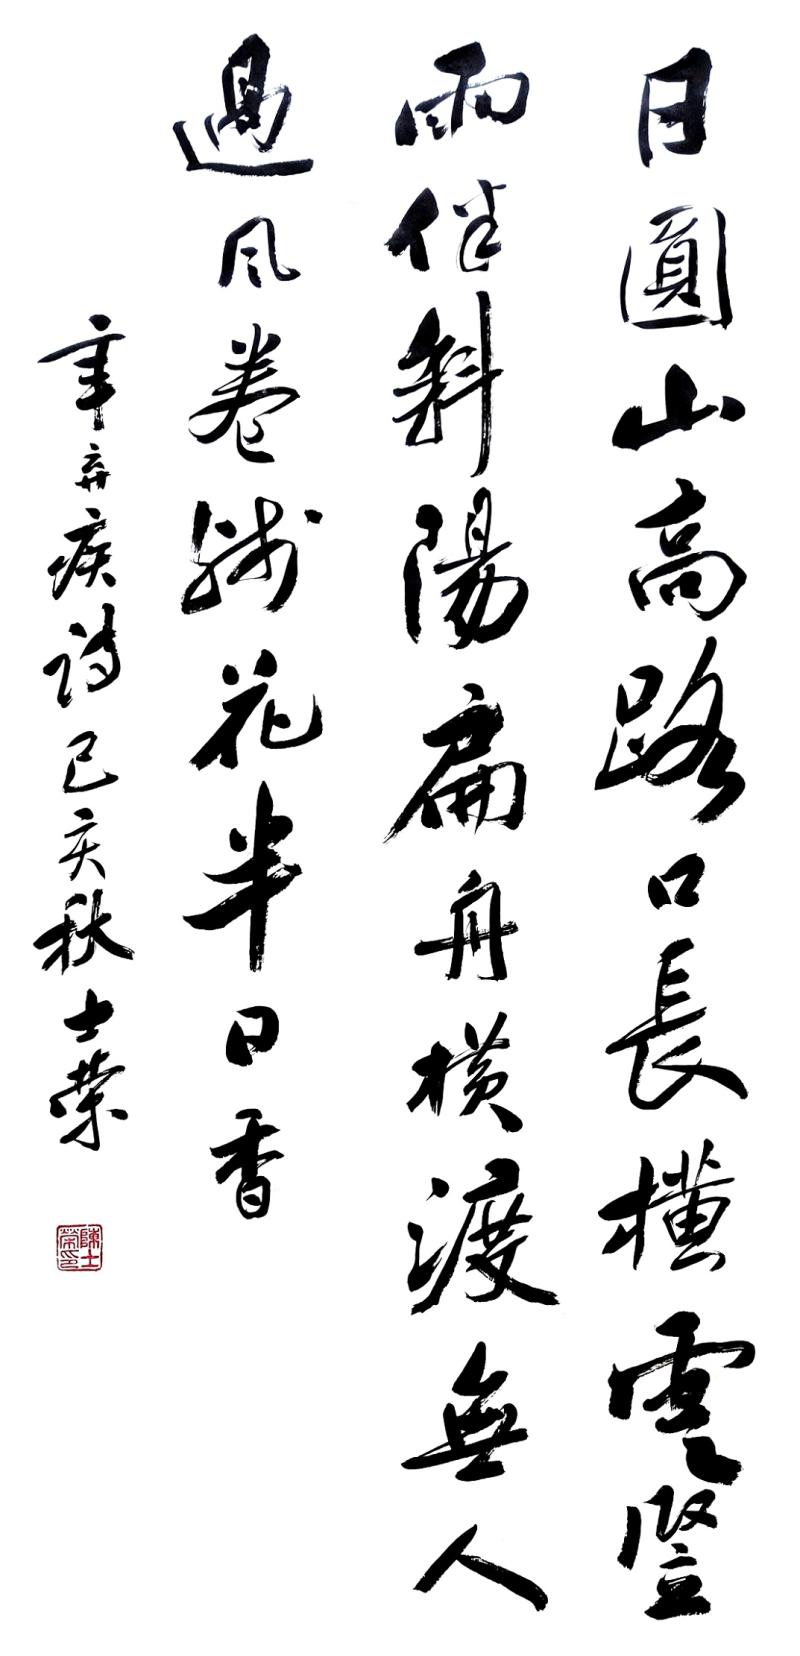 日圓山高路口長橫雲豎
雨伴斜陽扁舟橫渡無人
過風卷殘花半日香
辛弃疾诗己亥秋士荣
陳士榮印